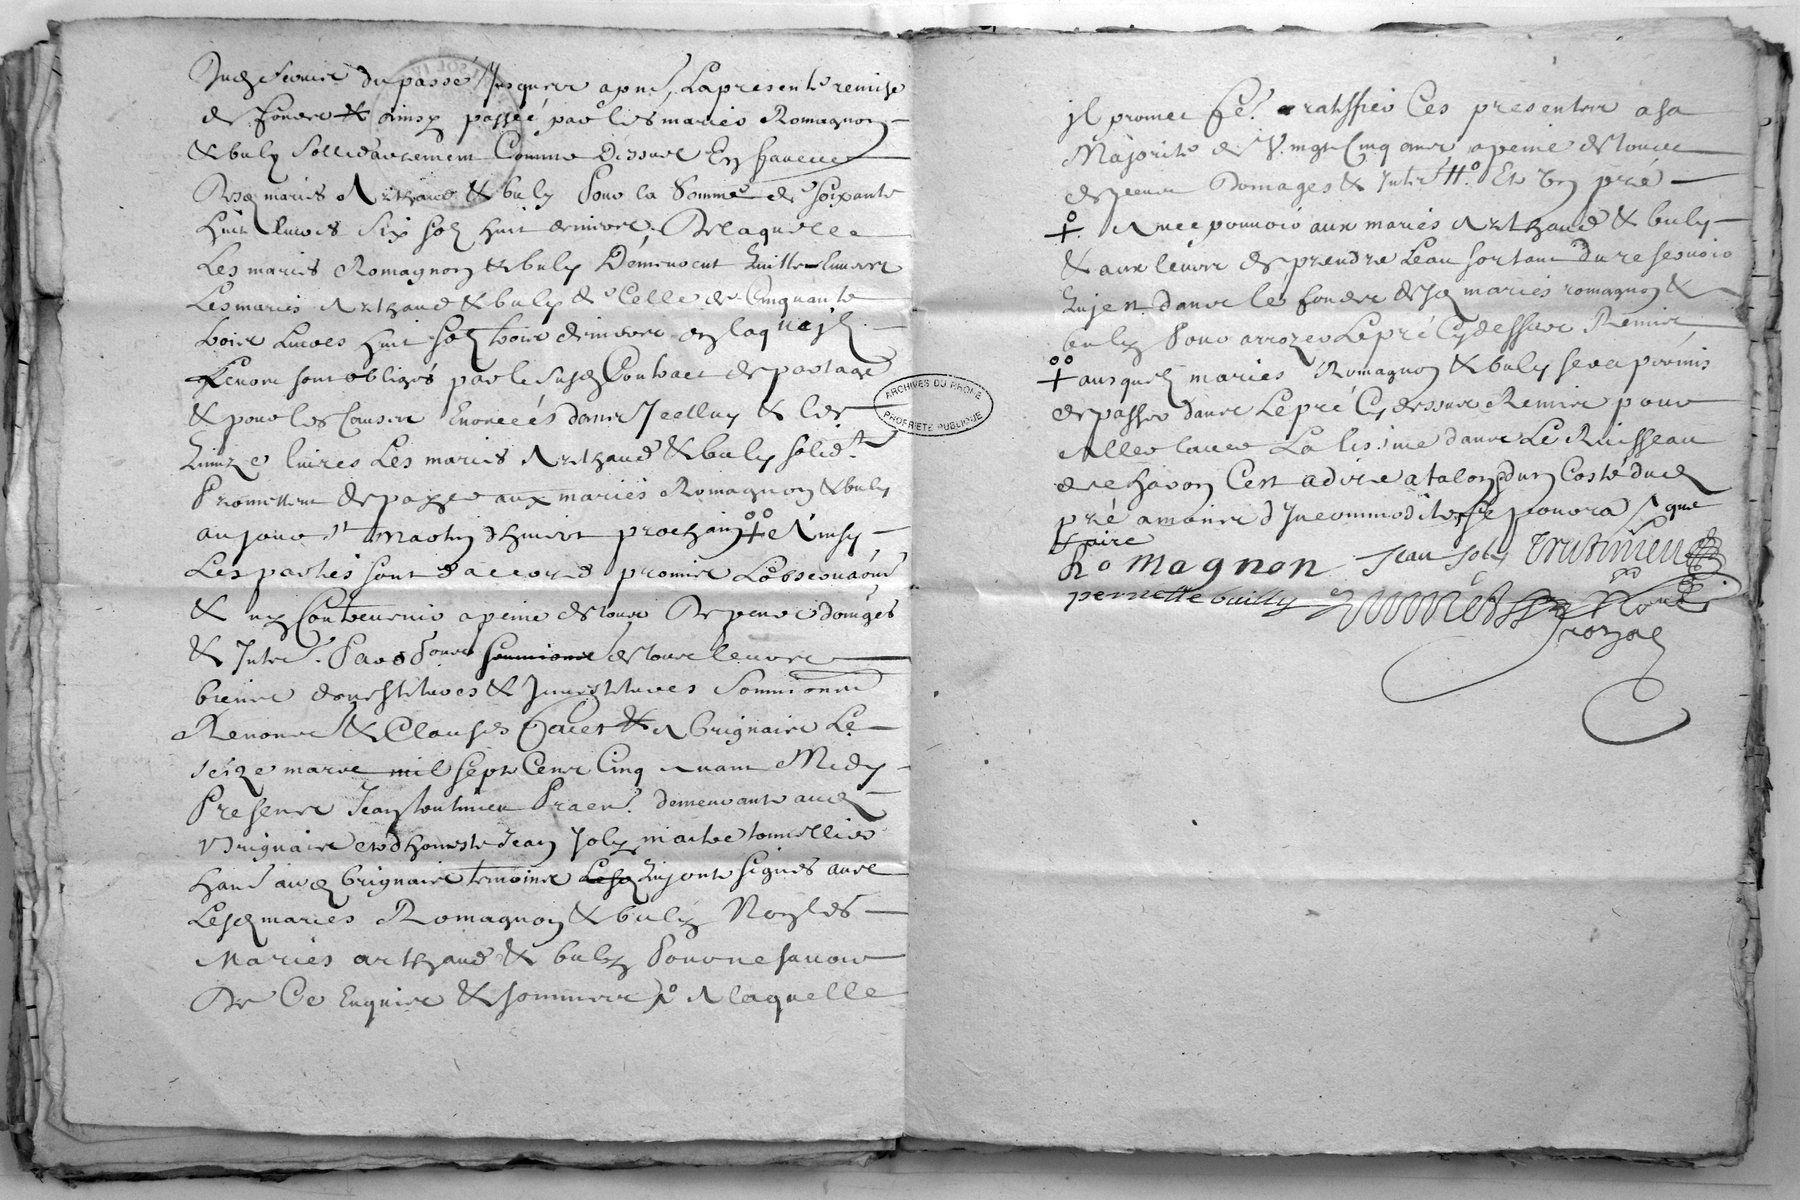 du passé Jusques a pnt, La presente remise
de fondz & ainsy passée par les mariés Romagnon
& buly sollidairement Comme Dessus En faveur
Desd mariés Arthaud & buly Pour la Somme de soixante
huit livres six solz huit deniers De laquelle
Les mariés Romagnon & buly Demeurent quittes Envers
Les mariés Arthaud & buly & Celle de Cinquante
trois Livres huit solz trois deniers en laqlle jlz
sont obligés par le susd Contract de partage
& pour les Causes Enoncées dans Jcelluy & les
quinze livres Les mariés Arthaud & buly solidt
Promettent de payer aux mariés Romagnon & buly
au jour st Martin d'hiver prochain & Ainsy
Les parties sont d'accord promis L'observation
& ny Contrevenir a peine de tous Despens domages
& Inter. Par de tous leurs
biens Soumissions
Renonc & Clauses Faict & A Brignais Le
seize mars mil sept Cens Cinq avant Midy
Presens Jean demeurant aud
Brignais et honneste Jean Joly maitre tonnellier
habt aud Brignais temoins quj ont signés avec
Lesd mariés Romagnon & buly Non les
Mariés arthaud & buly Pour ne sauoir
De Ce Enquis & sommés A laquelle
jl promet fe. ratiffier Ces presentes a sa
Majorité de Vingt Cinq ans a peine de tous
despens Domages & Inter. Et Un pré
Avec pouvoir aux mariés Arthaud & buly
& aux leurs de prendre L'eau sortant du reservoir
quj est dans les fondz desd mariés romagnon &
buly Pour arrozer Le pré Cy dessus Remis
ausquelz mariés Romagnon & buly sera permis
de passer dans Le pré Cy dessus Remis pour
Aller laver La lissive dans Le Ruisseau
de Chavon C'est a dire a talon d'un Costé dud
pré a moins d'Incommodité se pourra
faire
Romagnon Jean Joly
pernette builly
ARCHIVES DU RHÔNE
PROPRIÉTÉ PUBLIQUE